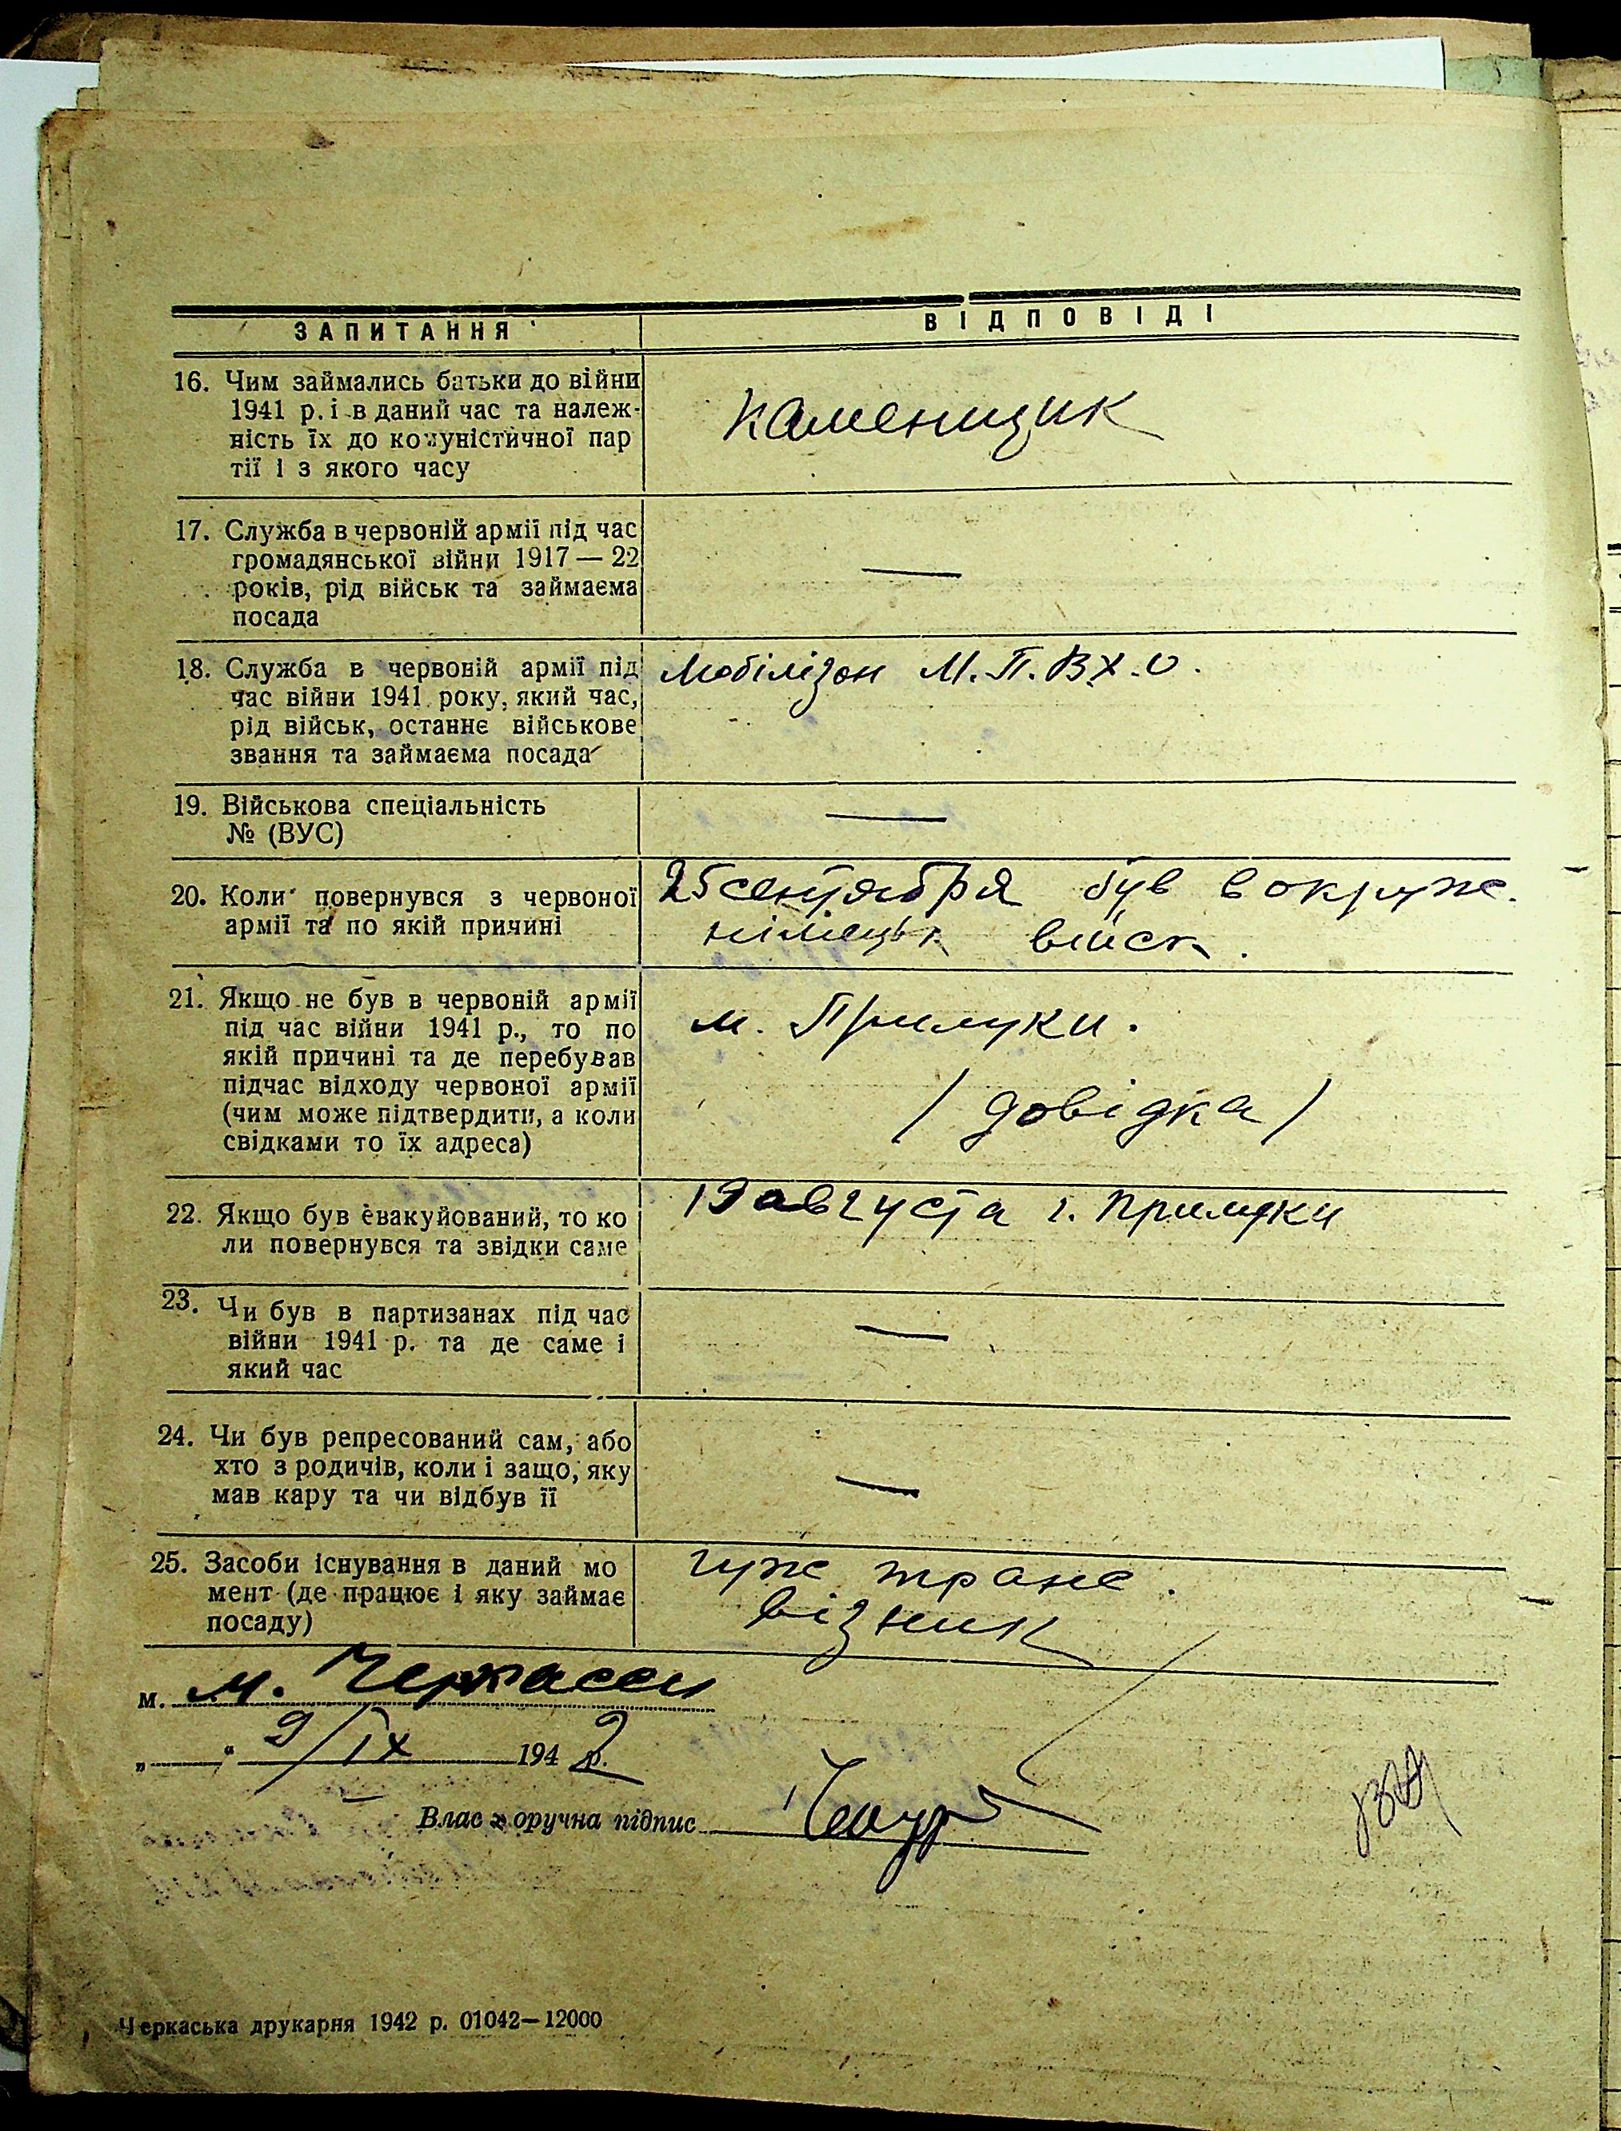 ЗАПИТАННЯ
ВІДПОВІДІ
16. Чим займались батьки до війни
1941 р. і в даний час та належ-
ність їх до комуністичної пар
тії і з якого часу
Каменщик
17. Служба в червоній армії під час
громадянської війни 1917 — 22
років, рід військ та займаєма
посада
—
18. Служба в червоній армії під
час війни 1941 року, який час,
рід військ, останнє військове
звання та займаєма посада
Мобілізон М.П.В.Х.О.
19. Військова спеціальність
№ (ВУС)
—
20. Коли повернувся з червоної
армії та по якій причині
25 сентября був в окруже.
німецьк війск.
21. Якщо не був в червоній армії
під час війни 1941 р., то по
якій причині та де перебував
підчас відходу червоної армії
(чим може підтвердити, а коли
свідками то їх адреса)
м. Прилуки.
/ довідка /
22. Якщо був евакуйований, то ко
ли повернувся та звідки саме
19 августа г. Прилуки
23. Чи був в партизанах під час
війни 1941 р. та де саме і
який час
—
24. Чи був репресований сам, або
хто з родичів, коли і защо, яку
мав кару та чи відбув її
—
25. Засоби існування в даний мо
мент (де працює і яку займає
посаду)
гуж транс.
візник
м. м. Черкасси
„ “ 9/IX 1942 р.
Власноручна підпис
Черкаська друкарня 1942 р. 01042—12000